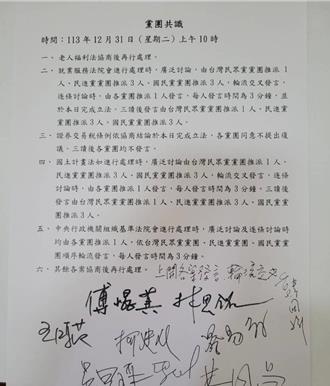 黨團共識
時間：113 年 12 月 31 日（星期二）上午 10 時
一、老人福利法協商後再行處理。
二、就業服務法院會進行處理時，廣泛討論，由台灣民眾黨黨團推派 1
人、民進黨黨團推派 3 人、國民黨黨團推派 3 人，輪流交叉發言，
逐條討論時，由各黨團推派 1 人發言，每人發言時間為 3 分鐘，並
於本日完成立法，三讀後發言由台灣民眾黨黨團推派 1 人、民進
黨黨團推派 3 人、國民黨黨團推派 3 人。
三、證券交易稅條例依協商結論於本日完成立法，各黨團同意不提出復
議，三讀後各黨團均不發言。
四、國土計畫法如進行處理時，廣泛討論由台灣民眾黨黨團推派 1 人、
民進黨黨團推派 3 人、國民黨黨團推派 3 人，輪流交叉發言，逐條
討論時，由各黨團推派 1 人發言，每人發言時間為 3 分鐘，三讀後
發言由台灣民眾黨黨團推派 1 人、民進黨黨團推派 3 人、國民黨黨
團推派 3 人。
五、中央行政機關組織基準法院會進行處理時，廣泛討論及逐條討論時
均由各黨團推派 1 人，依台灣民眾黨黨團、民進黨黨團、國民黨黨
團順序輪流發言，每人發言時間為 3 分鐘。
六、其餘各案協商後再行處理。
傅崐萁 林思銘